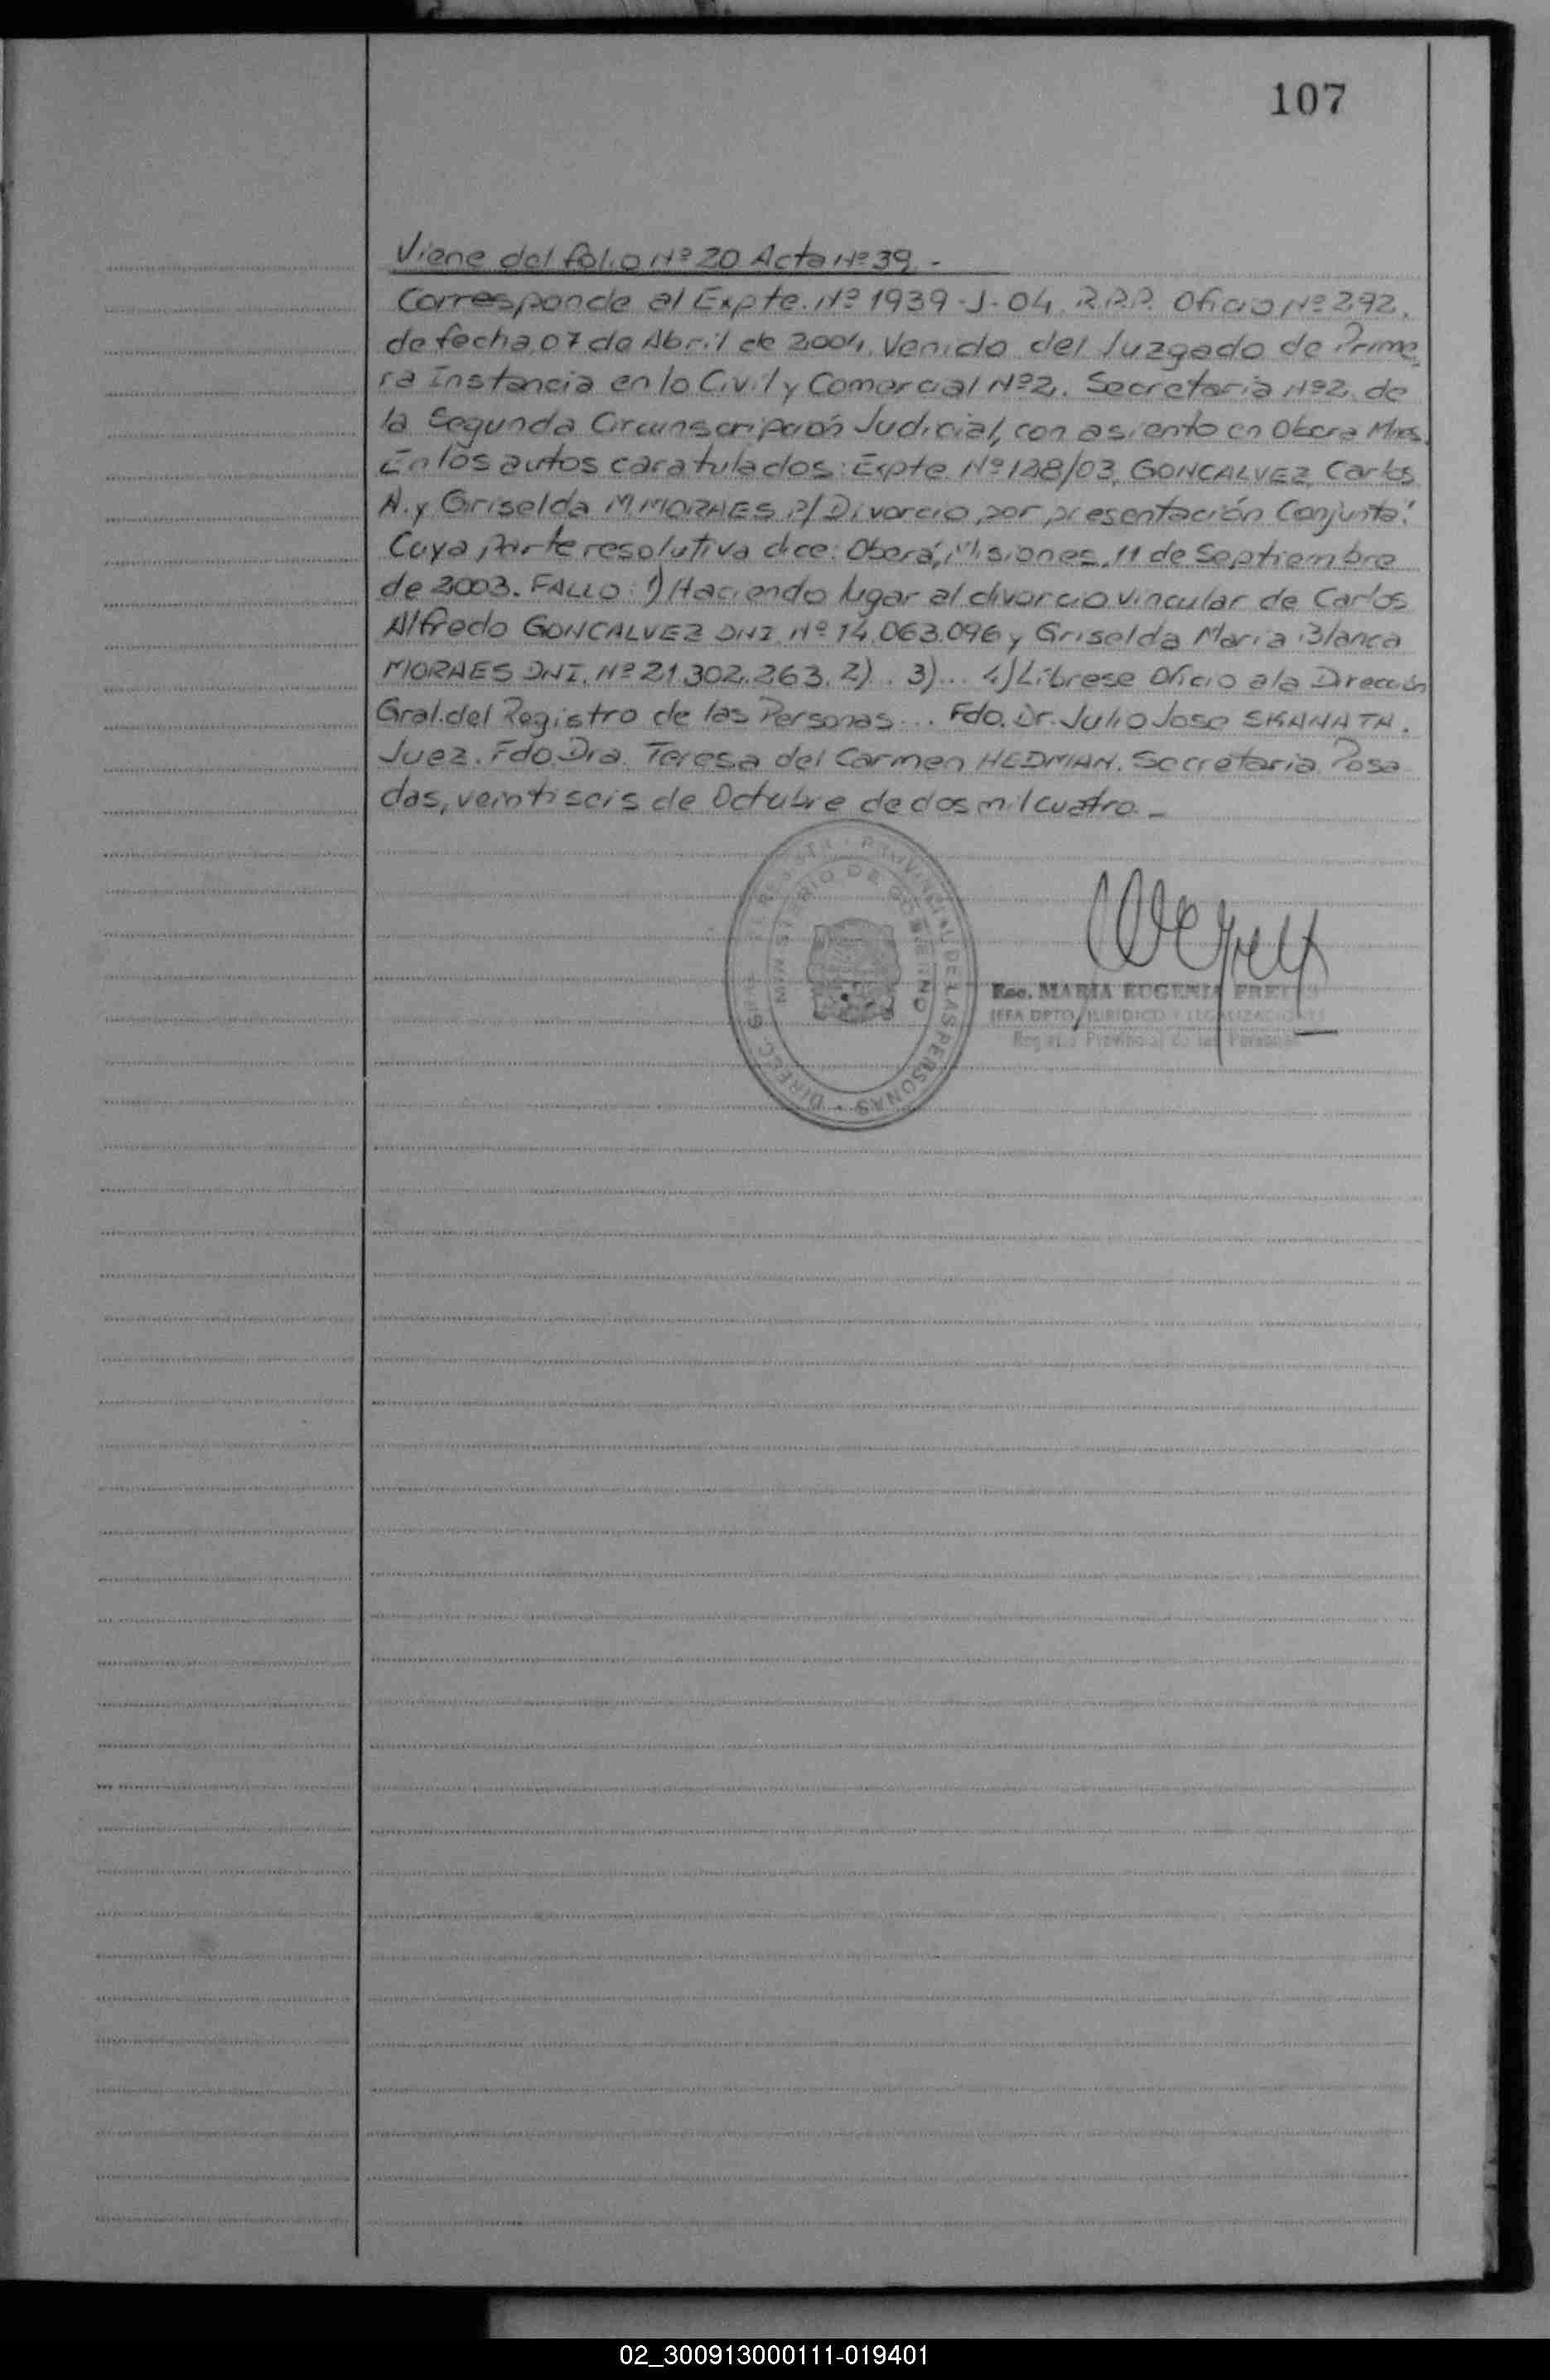 107
Viene del folio Nº 20 Acta Nº 39.-
Corresponde al Expte. Nº 1939-J-04. R.P.P. Oficio Nº 292.
de fecha 07 de Abril de 2004. Venido del Juzgado de Prime
ra Instancia en lo Civil y Comercial Nº 2. Secretaria Nº 2. de
la Segunda Circunscripción Judicial, con asiento en Obera Mnes.
En los autos caratulados: Expte. Nº 128/03, GONCALVEZ Carlos
A. y Griselda M. MORAES P/ Divorcio por presentación Conjunta"
Cuya parte resolutiva dice: Oberá, Misiones, 11 de Septiembre
de 2003. FALLO: 1) Haciendo lugar al divorcio vincular de Carlos
Alfredo GONCALVEZ DNI. Nº 14.063.096 y Griselda Maria Blanca
MORAES DNI. Nº 21.302.263. 2). 3)... 4) Librese Oficio a la Dirección
Gral. del Registro de las Personas... Fdo. Dr. Julio Jose SKANATA.
Juez. Fdo. Dra. Teresa del Carmen HEDMAN. Secretaria. Posa
das, veintiseis de Octubre de dos mil cuatro.-
DIRECC. GRAL. REGISTRO PROVINCIAL DE LAS PERSONAS
MINISTERIO DE GOBIERNO
Esc. MARIA EUGENIA
JEFA DPTO. JURIDICO Y LEGALIZACIONES
Registro Provincial de las Personas
02_300913000111-019401